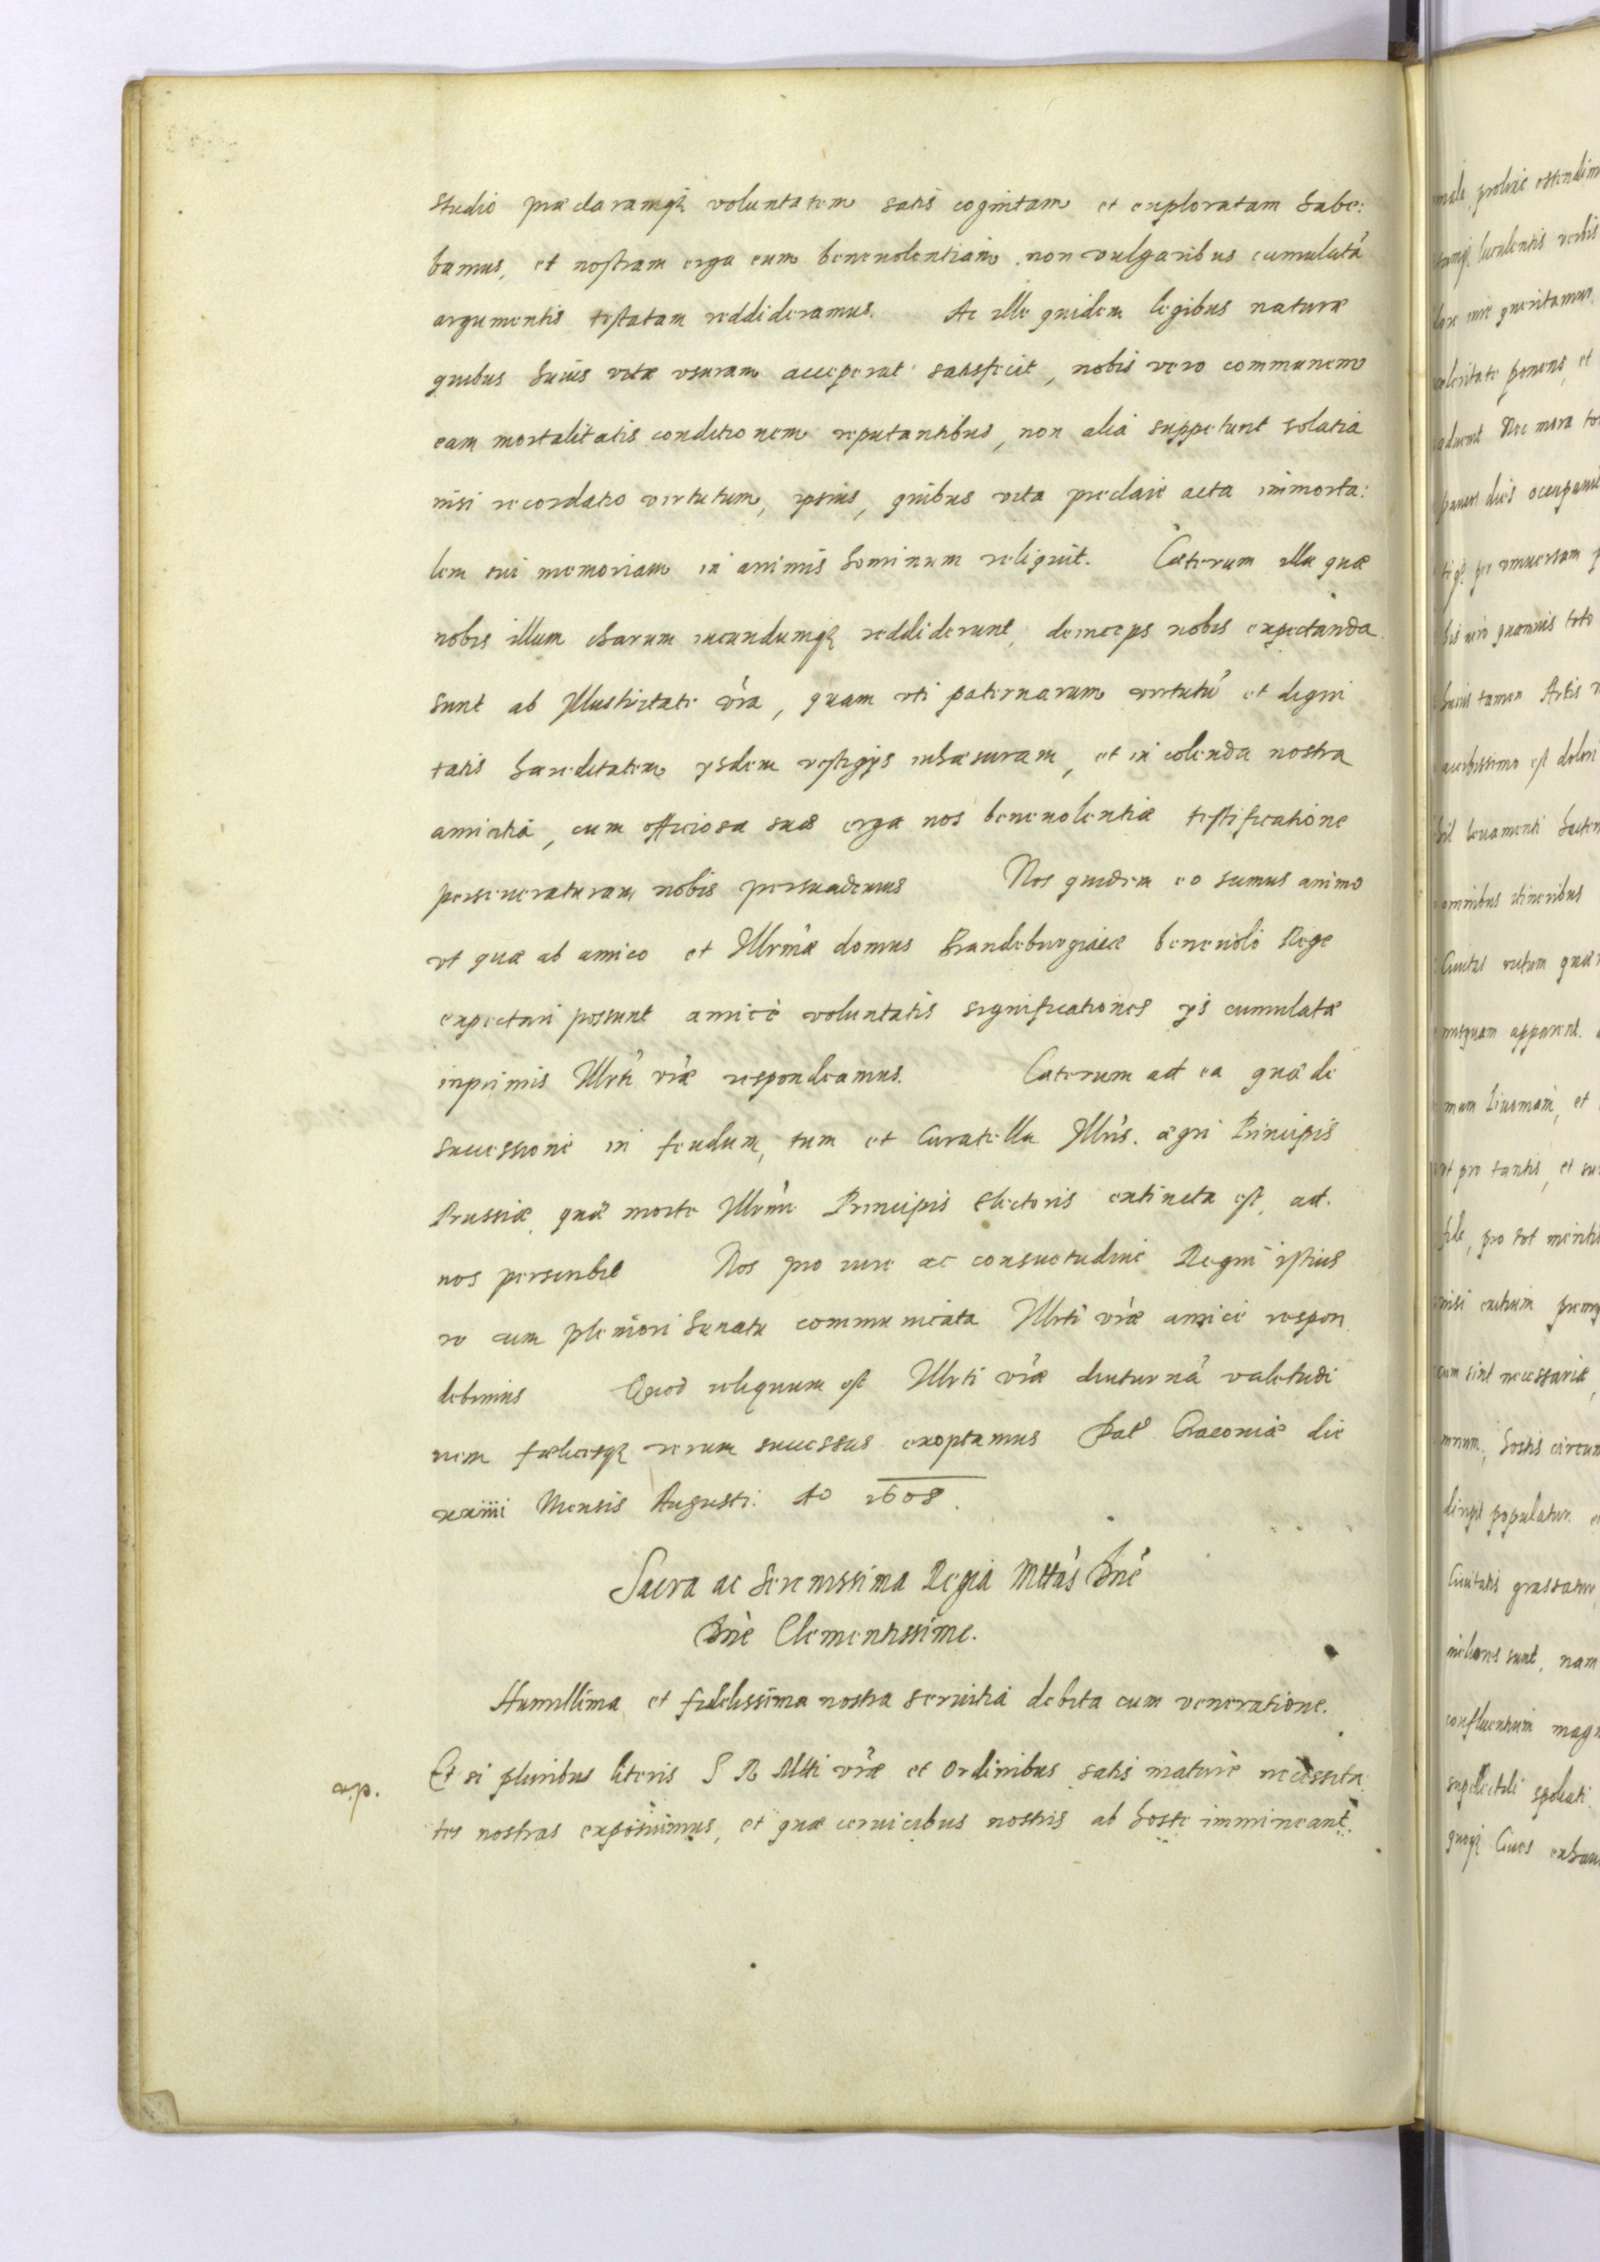 studio præclaramq voluntatem satis cognitam et exploratam habe:
bamus, et nostram erga eum beneuolentiam non vulgaribus cumulatā
argumentis testatam reddideramus. Ac ille quidem legibus naturæ
quibus huius vitæ vsuram acceperat satisfecit, nobis vero communem
eam mortalitatis conditionem reputantibus, non alia suppetunt solatia
nisi recordatio virtutum, ipsius, quibus vita preclare acta immorta:
lem sui memoriam in animis hominum reliquit. Cæterum illa quæ
nobis illum charum iucundumq reddiderunt, deinceps nobis expectanda
sunt ab Illustritate vra, quam vti paternarum virtutū et digni
tatis hæreditatem ysdem vestigys inhæsuram, et in colenda nostra
amicitia, cum officiosa suæ erga nos beneuolentiæ testificatione
perseueraturam nobis persuademus Nos quidem eo sumus animo
vt quæ ab amico et Illrmæ domus Brandeburgiacæ beneuolo Rege
expectari possunt amicè voluntatis significationes ys cumulatæ
inprimis Illrti vræ respondeamus. Cæterum ad ea quæ de
successione in feudum, tum et Curatella Illris. ægri Principis
Prussiæ quæ morte Illrmi Principis Electoris extincta est, ad
nos perscribit Nos pro iure ac consuetudine Regni istius
re cum pleniori Senatu communicata Illrti vræ amice respon
debimus Quod reliquum est Illrti vræ diuturnā valetudi
nem fælicesq rerum successus exoptamus Dat Cracoviæ die
xxiiii Mensis Augusti: Ao 1608.
Sacra ac Serenissima Regia Mttas Dne
Dne Clementissime.
Humillima et fidelissima nostra seruitia debita cum veneratione.
a.p. Et si pluribus literis S R Mtti vræ et Ordinibus satis maturè necessita
tes nostras exposuimus, et quæ ceruicibus nostris ab hoste immineant.